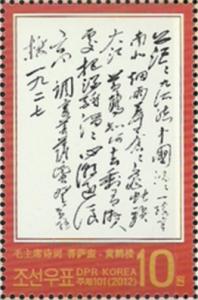 茫茫九派流中國沉沉一線穿
南北烟雨莽蒼蒼龜蛇鎖
大江 黃鶴知何去剩有游人
處把酒酹滔滔心潮逐浪
高 調寄菩薩蠻
樓 一九二七
毛主席诗词 菩萨蛮·黄鹤楼
조선우표 DPR KOREA 10원
주체101(2012)